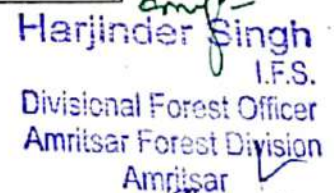 Harjinder Singh
I.F.S.
Divisional Forest Officer
Amritsar Forest Division
Amritsar